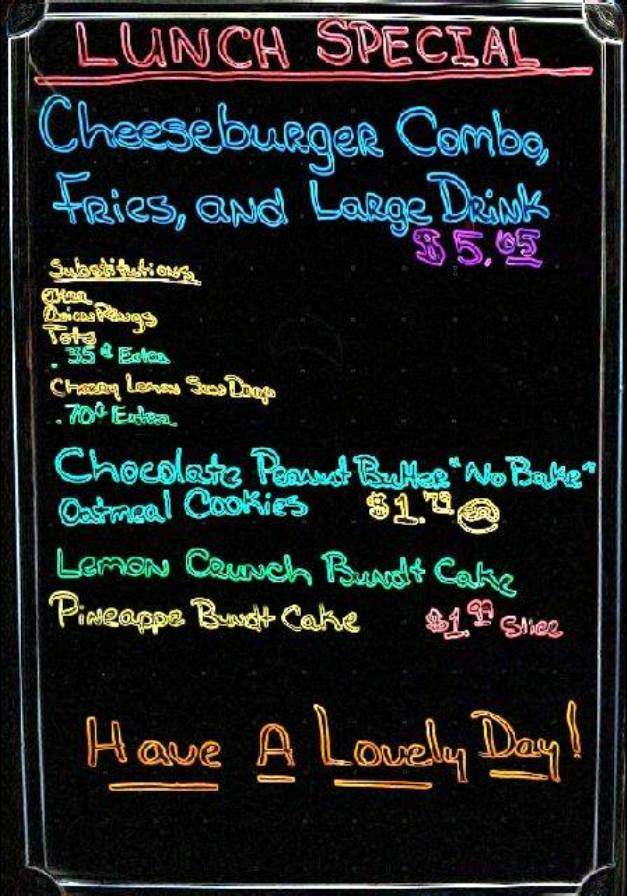 LUNCH SPECIAL
Cheeseburger Combo,
Fries, and Large Drink
Substitutions
Okra
Onion Rings
Tots
.35¢ Extra
Cherry Lemon Sun Drop
.70¢ Extra
Chocolate Peanut Butter "No Bake"
Oatmeal Cookies $1.79
Lemon Crunch Bundt Cake
Pineappe Bundt Cake $1.99 Slice
Have A Lovely Day!